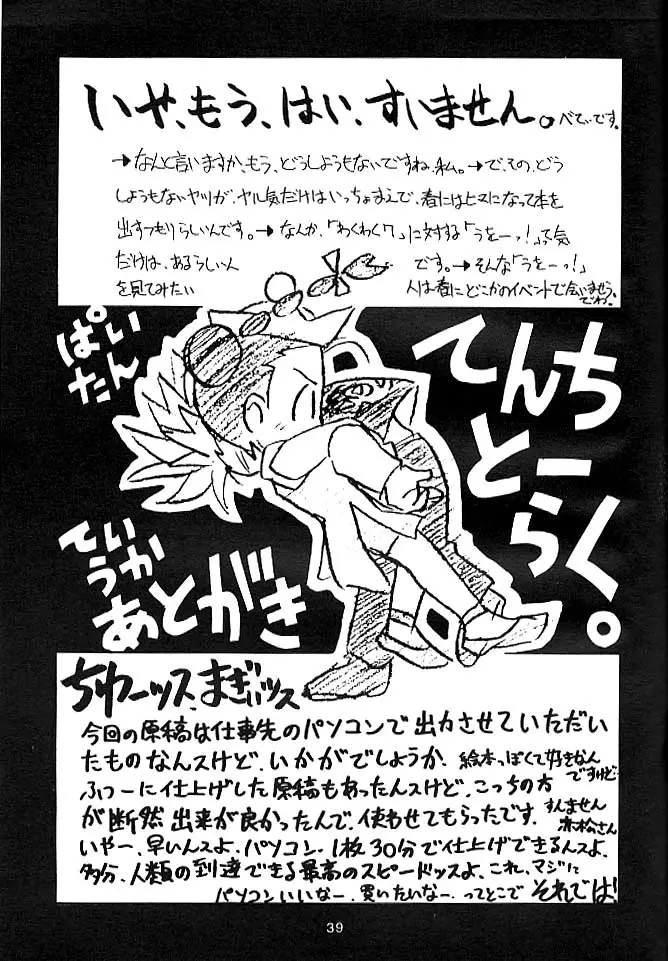 いや、もう、はい、すいません。べてぃです。
→なんと言いますか、もう、どうしようもないですね、私。→で、その、どう
しようもないヤツが、ヤル気だけはいっちょまえで、春にはヒマになって本を
出すつもりらしいんです。→なんか、「わくわく7」に対する「うをーっ!」って気
だけは、あるらしい人です。→そんな「うをーっ!」
を見てみたい人は春にどこかのイベントで会いませう。
でわ。
ぱいたん
てんちとーらく。
ていうか
あとがき
ちゅーッス、まぎぃッス
今回の原稿は仕事先のパソコンで出力させていただい
たものなんスけど、いかがでしょうか。絵本っぽくて好きなん
ですけど…
ふつーに仕上げした原稿もあったんスけど、こっちの方
が断然出来が良かったんで、使わせてもらったです。すんません
赤松さん
いやー、早いんスよ、パソコン。1枚30分で仕上げできるんスよ。
多分、人類の到達できる最高のスピードッスよ、これ、マジに
パソコンいいなー、買いたいなー、ってとこで それでは!
39